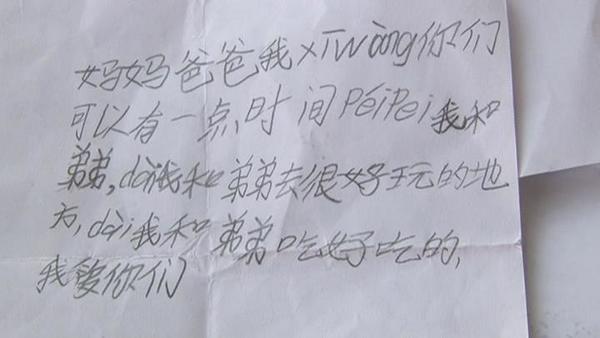 妈妈爸爸我xīwàng你们
可以有一点,时间péiPei我和
弟弟,dài我和弟弟去很好玩的地
方,dài我和弟弟吃好吃的,
我爱你们